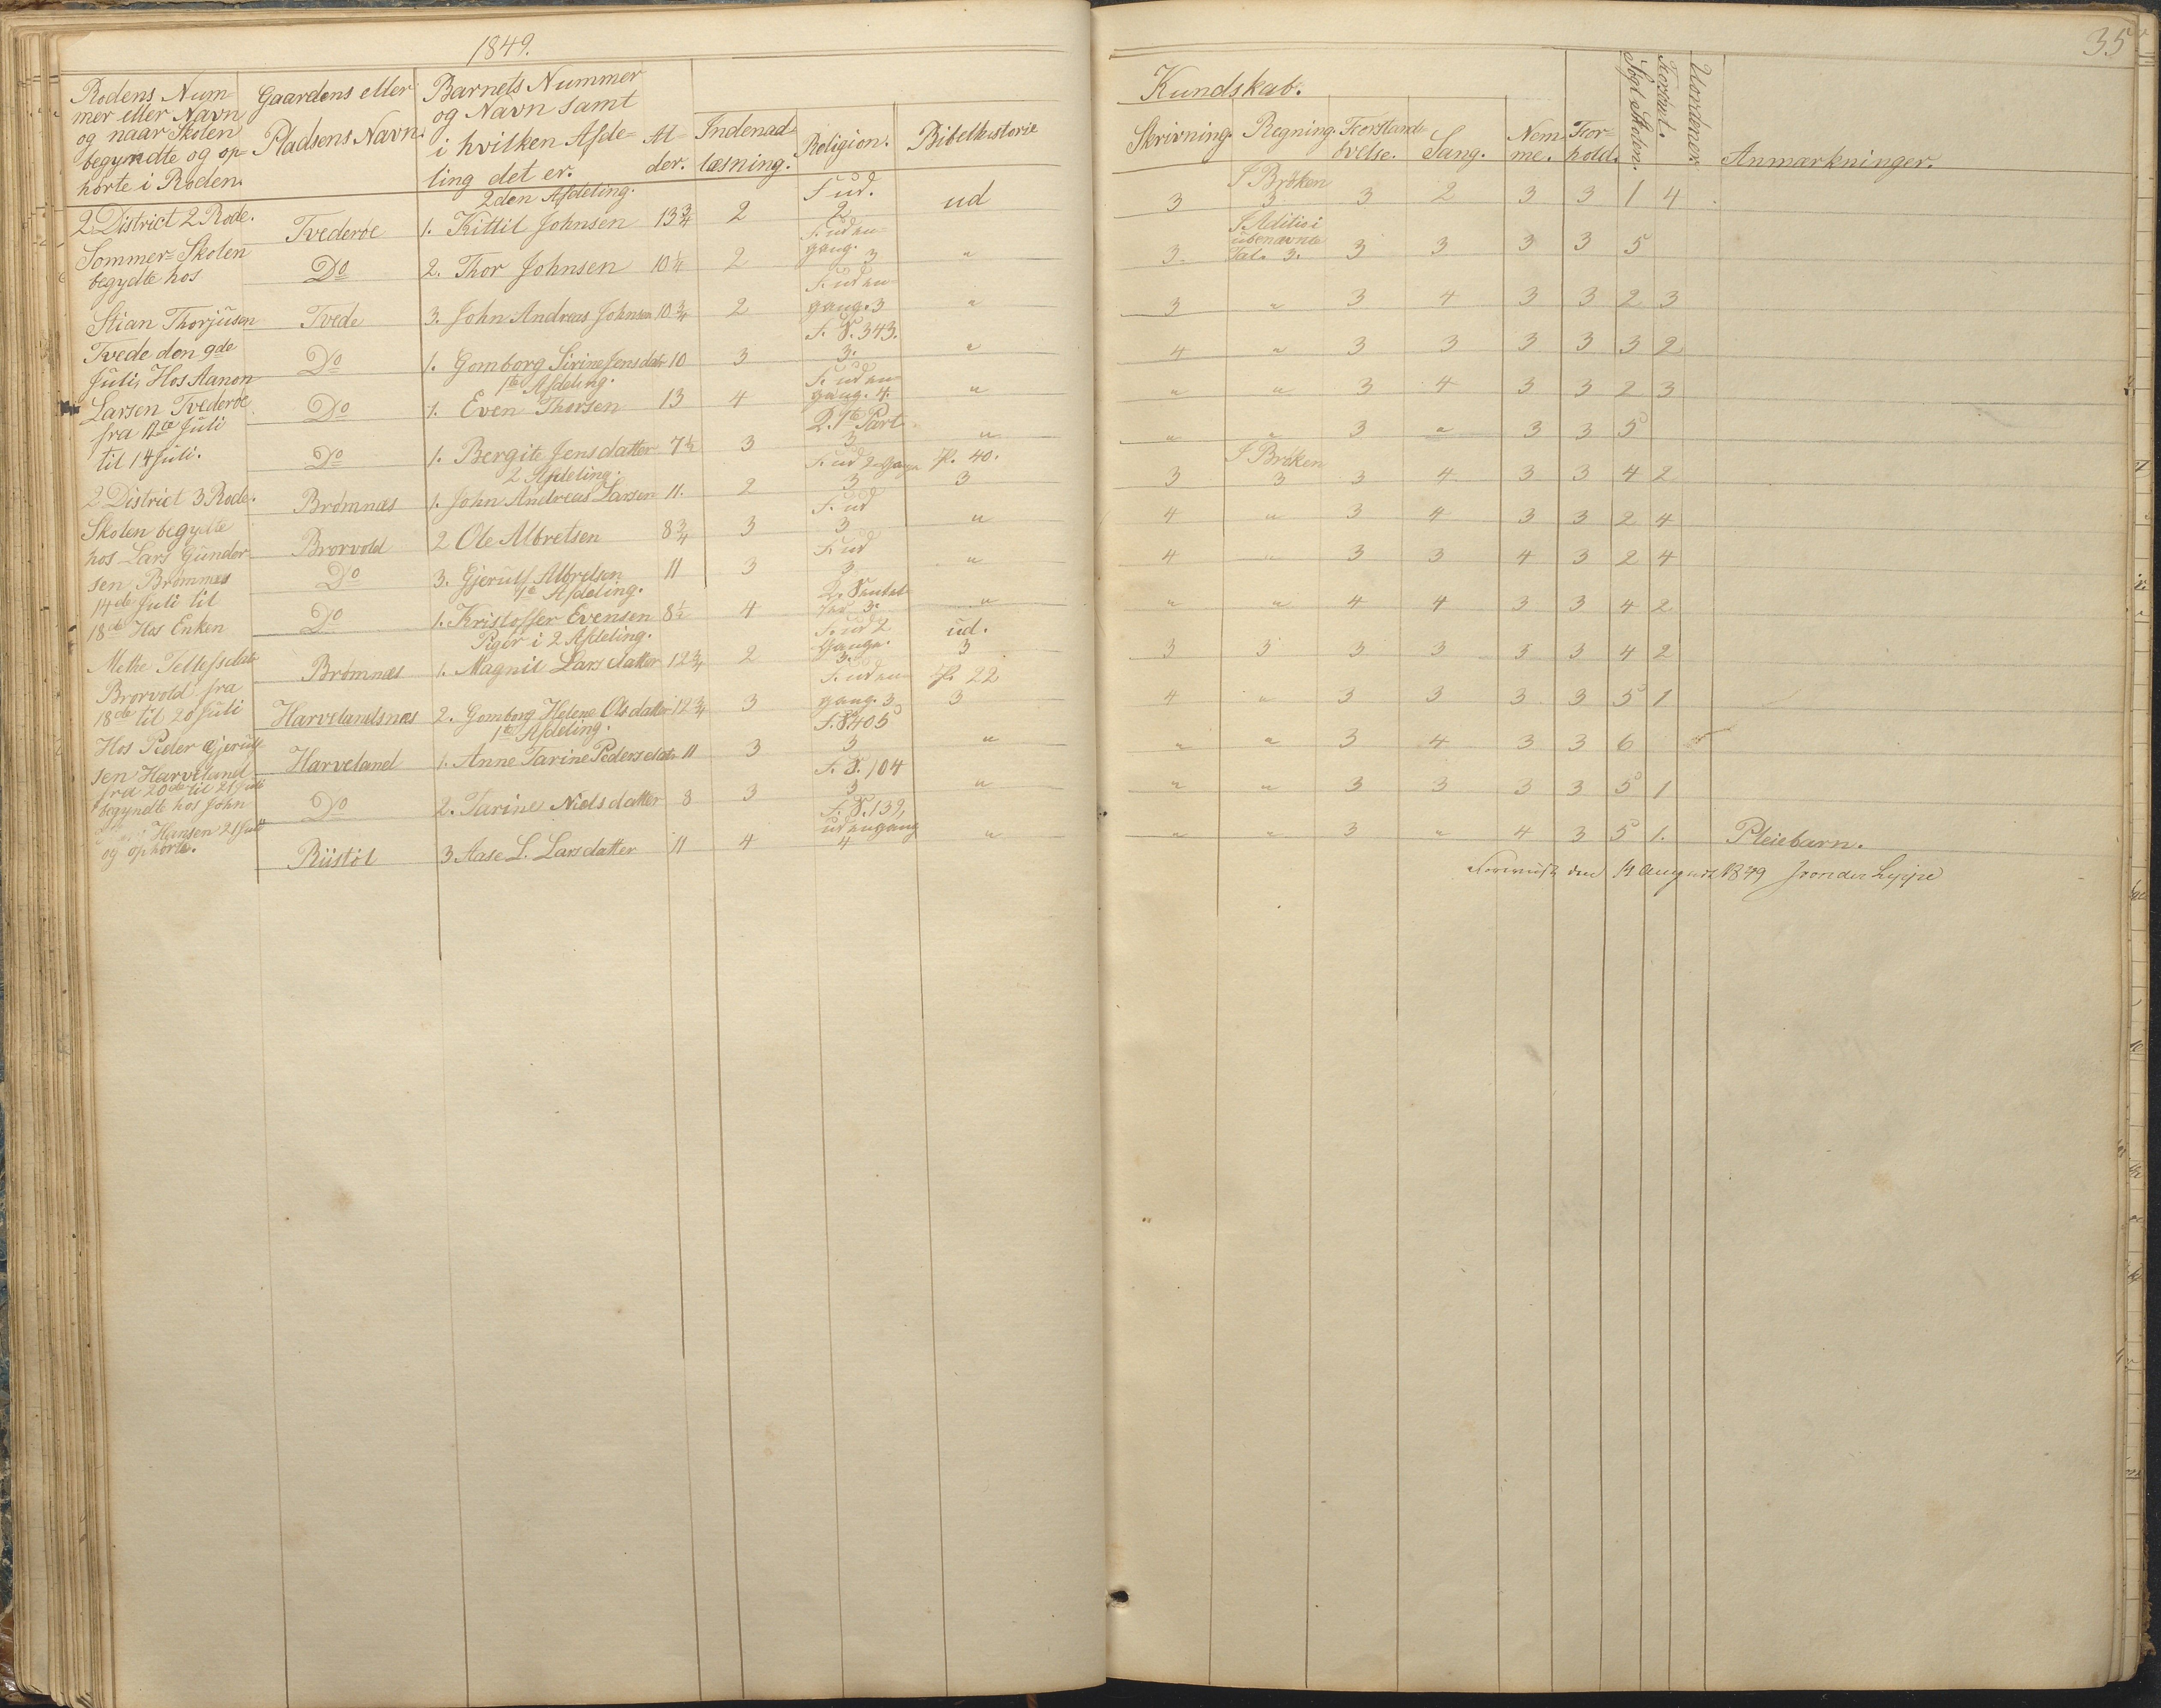 1849.
35
Rodens Num-
mer eller Navn
og naar Skolen
begyndte og op-
hørte i Roden.
Gaardens eller
Pladsens Navn.
Barnets Nummer
og Navn samt
i hvilken Afde-
ling det er.
Al-
der.
Indenad-
læsning.
Religion.
Bibelhistorie
Kundskab.
Skrivning.
Regning.
Forstands
øvelse.
Sang.
Nem-
me.
For-
hold.
Søgd Skolen.
Forsømt.
Uordener.
Anmærkninger.
2 District 2 Rode.
Sommer-Skolen
begydte hos
Stian Thorjüsen
Tvede den 9de
Juli, Hos Aanon
Larsen Tvederøe
fra 12te Juli
til 14 Juli.
2 District 3 Rode.
Skolen begydte
hos Lars Gunder-
sen Brømnes
14de Juli til
18de Hos Enken
Methe Tellefsdatr
Brorvold fra
18de til 20 Juli
Hos Peder Gjerulf-
sen Harveland
fra 20de til 21 Juli
begyndte hos John
Hansen 21 Juli
og ophørte.
2den Afdeling.
Tvederøe 1. Kittil Johnsen 13 3/4 2 F. ud. 2 ud 3 I Brøken 3 3 2 3 3 1 4
Do 2. Thor Johnsen 10 1/4 2 F. ud en gang. 3 " 3. I Aditio i übenævnte Tal. 3. 3 3 3 3 5
Tvede 3. John Andreas Johnsen 10 3/4 2 F. ud en gang. 3 " 3 " 3 4 3 3 2 3
Do 1. Gomborg Sirine Jensdatr 10 3 F. S. 343. 3. " 4 " 3 3 3 3 3 2
1te Afdeling.
Do 1. Even Thorsen 13 4 F. ud en gang. 4. " " " 3 4 3 3 2 3
Do 1. Bergite Jensdatter 7 1/2 3 2. 1te Part 3 " " " 3 " 3 3 5
2 Afdeling.
Brømnæs 1. John Andreas Larsen 11. 2 F. ud 2 Gange 3 P. 40. 3 3 I Brøken 3 3 4 3 3 4 2
Brorvold 2 Ole Albretsen 8 3/4 3 F. ud 3 " 4 " 3 4 3 3 2 4
Do 3. Gjerulf Albretsen 11 3 F. ud 3 " 4 " 3 3 4 3 2 4
1te Afdeling.
Do 1. Kristoffer Evensen 8 1/2 4 3. " " " 4 4 3 3 4 2
Piger i 2 Afdeling.
Brømnæs 1. Magnil Larsdatter 12 3/4 2 F. ud 2 Gange. 3. ud. 3 3 3 3 3 3 3 4 2
Harvelandsnæs 2. Gomborg Helene Olsdatter 12 3/4 3 F. ud en gang. 3 P. 22 3 4 " 3 3 3 3 5 1
1te Afdeling.
Harveland 1. Anne Tarine Pedersdatr 11 3 F. S. 405 3 " " " 3 4 3 3 6
Do 2. Tarine Nielsdatter 8 3 F. S. 104 3 " " " 3 3 3 3 5 1
Riistøl 3. Aase L. Larsdatter 11 4 F. S. 139, ud en gang 4 " " " 3 " 4 3 5 1. Pleiebarn.
den 14 August 1849 von der Lippe